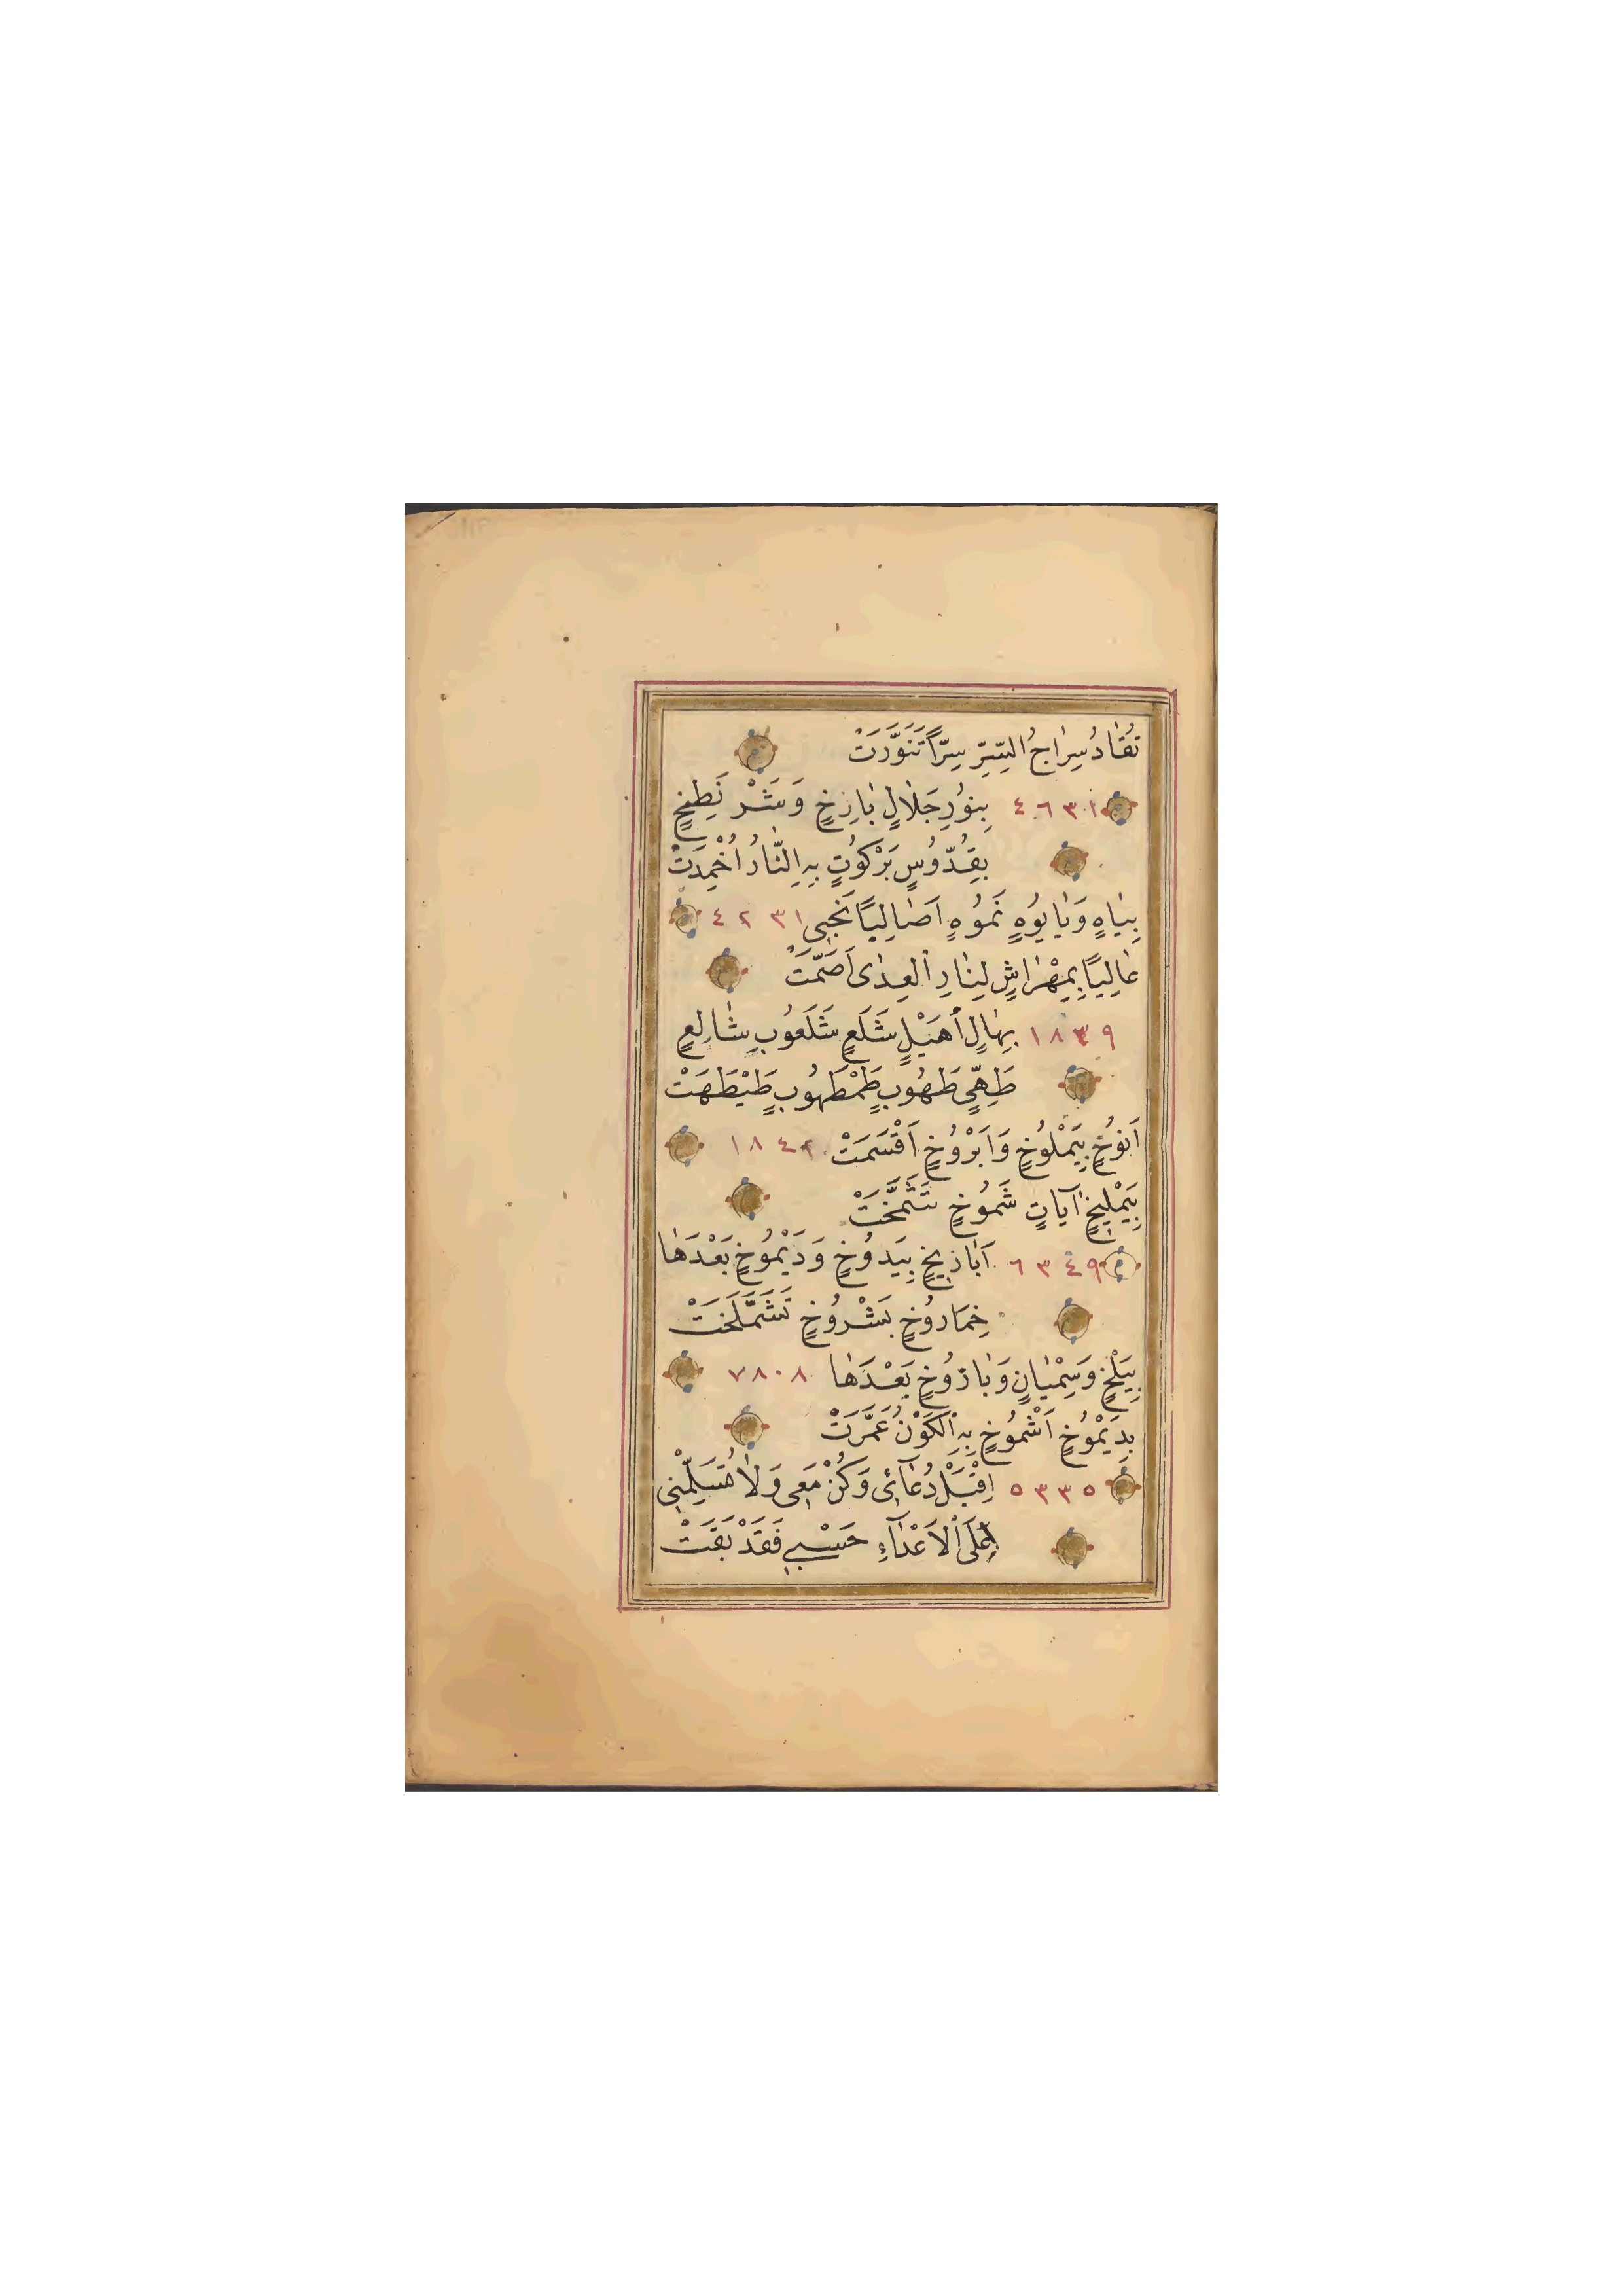 تُقَادُ سِرَاجُ السِّرِّ سِرًّا تَنَوَّرَتْ
٤٦٣١ بِنُورِ جَلَالٍ بَازِخٍ وَشَرْنَطِخٍ
بِقُدُّوسٍ بَرْكُوتٍ بِهِ النَّارُ اُخْمِدَتْ
بِيَاهٍ وَيَايُوهٍ نَمُوهٍ اَصَالِيًا نَجِّى ٤٢٣١
عَالِيًا بِمِهْرَاشٍ لِنَارِ الْعِدٰى اَصَمَّتْ
١٨٣٩ بِهَالٍ اَهَيْلٍ شَلَعٍ شَلَعُوبٍ شَالِعٍ
طَهِّىٍ طَهُوبٍ طَمْطَهُوبٍ طَيْطَهَتْ
اَنُوخٍ بِيَمْلُوخٍ وَاَبْرُوخٍ اَقْسَمَتْ ١٨٤٢
بِيَمْلِيخٍ اٰيَاتٍ شَمُوخٍ تَشَمَّخَتْ
٦٣٤٩ اَبَاذِيخٍ بِيَدُوخٍ وَذَيْمُوخٍ بَعْدَهَا
خِمَارُوخٍ بَشْرُوخٍ تَشَمَّلَخَتْ
بِبَلْخٍ وَسِمْيَانٍ وَبَازُوخٍ بَعْدَهَا ٧٨٠٨
بِدَيْمُوخٍ اَشْمُوخٍ بِهِ الْكَوْنُ عَمَّرَتْ
٥٣٣٥ اِقْبَلْ دُعَآئِى وَكُنْ مَعِى وَلَا تُسَلِّمْنِى
عَلَى الْاَعْدَآءِ حَسْبِى فَقَدْ بَقَتْ